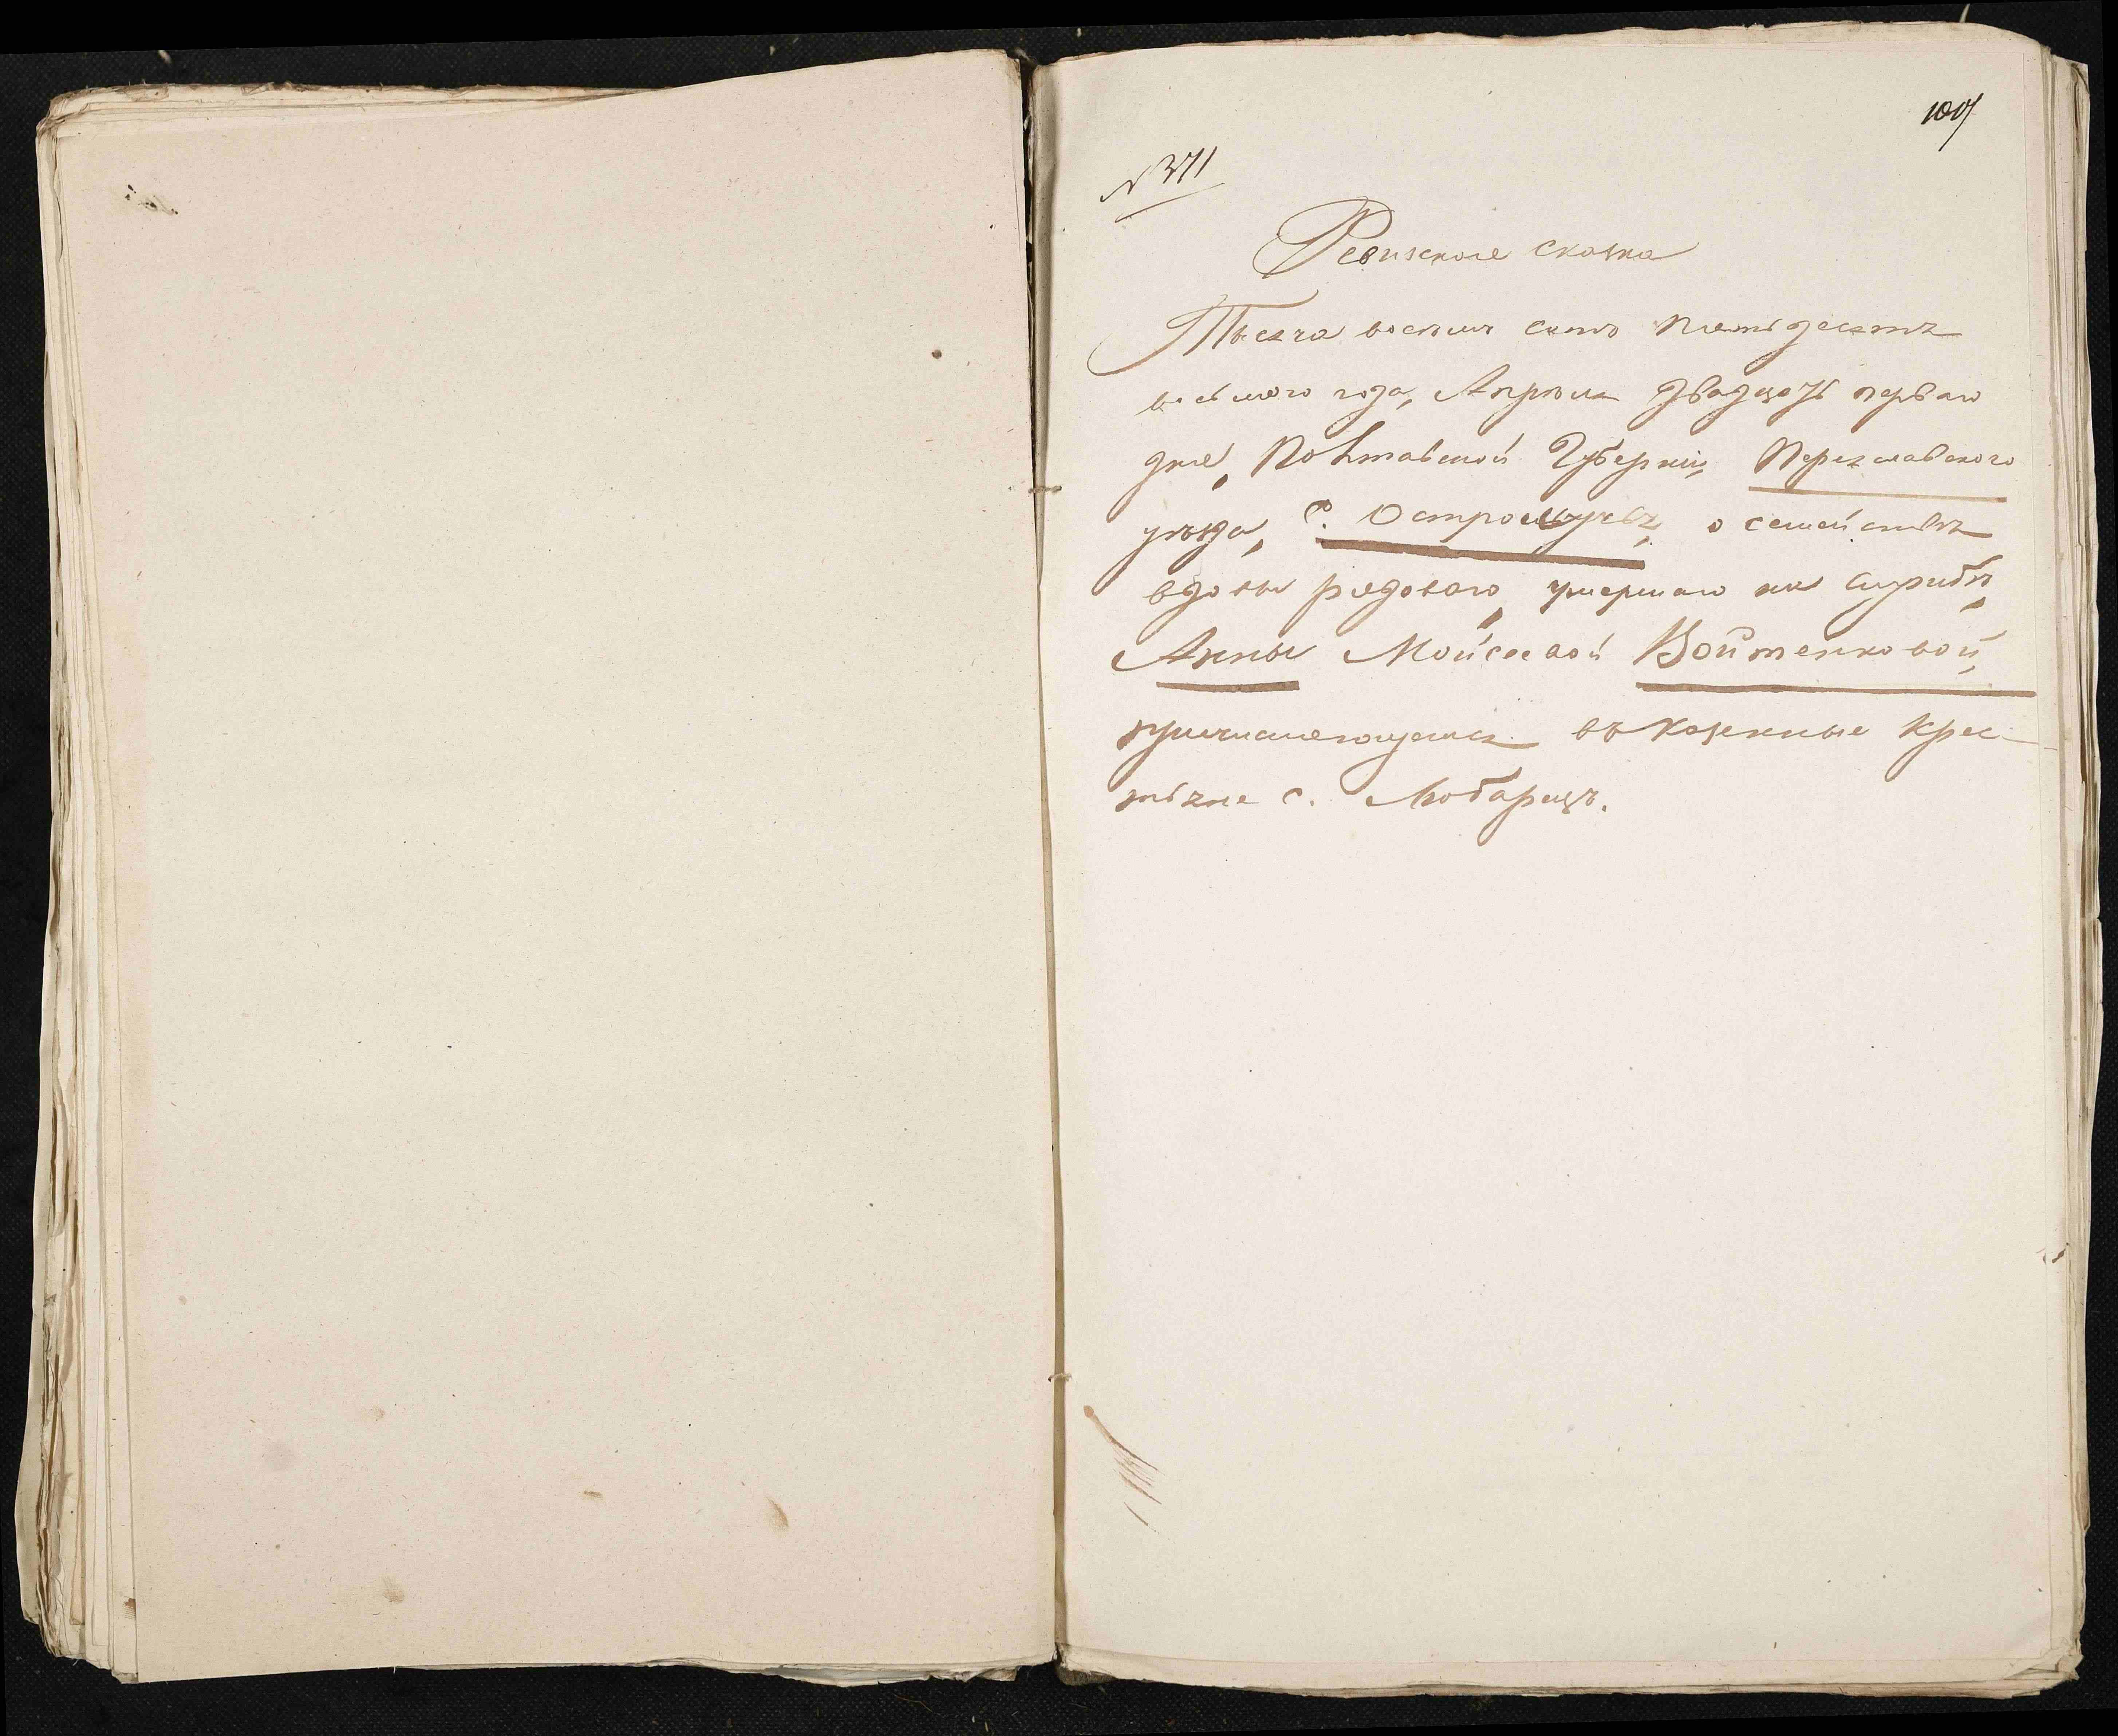 № 371
Ревизская сказка
Тысяча восемь сотъ пятьдесятъ
восьмого года, Апреля двадцать перваго
дня, Полтавской Губерніи, Переяславского
уѣзда, с. Остролучья, о семействѣ
вдовы рядового, умершаго на службѣ,
Анны Мойсеевой Войтенковой,
причисляющемся въ казенные крес-
тьяне с. Любарецъ.